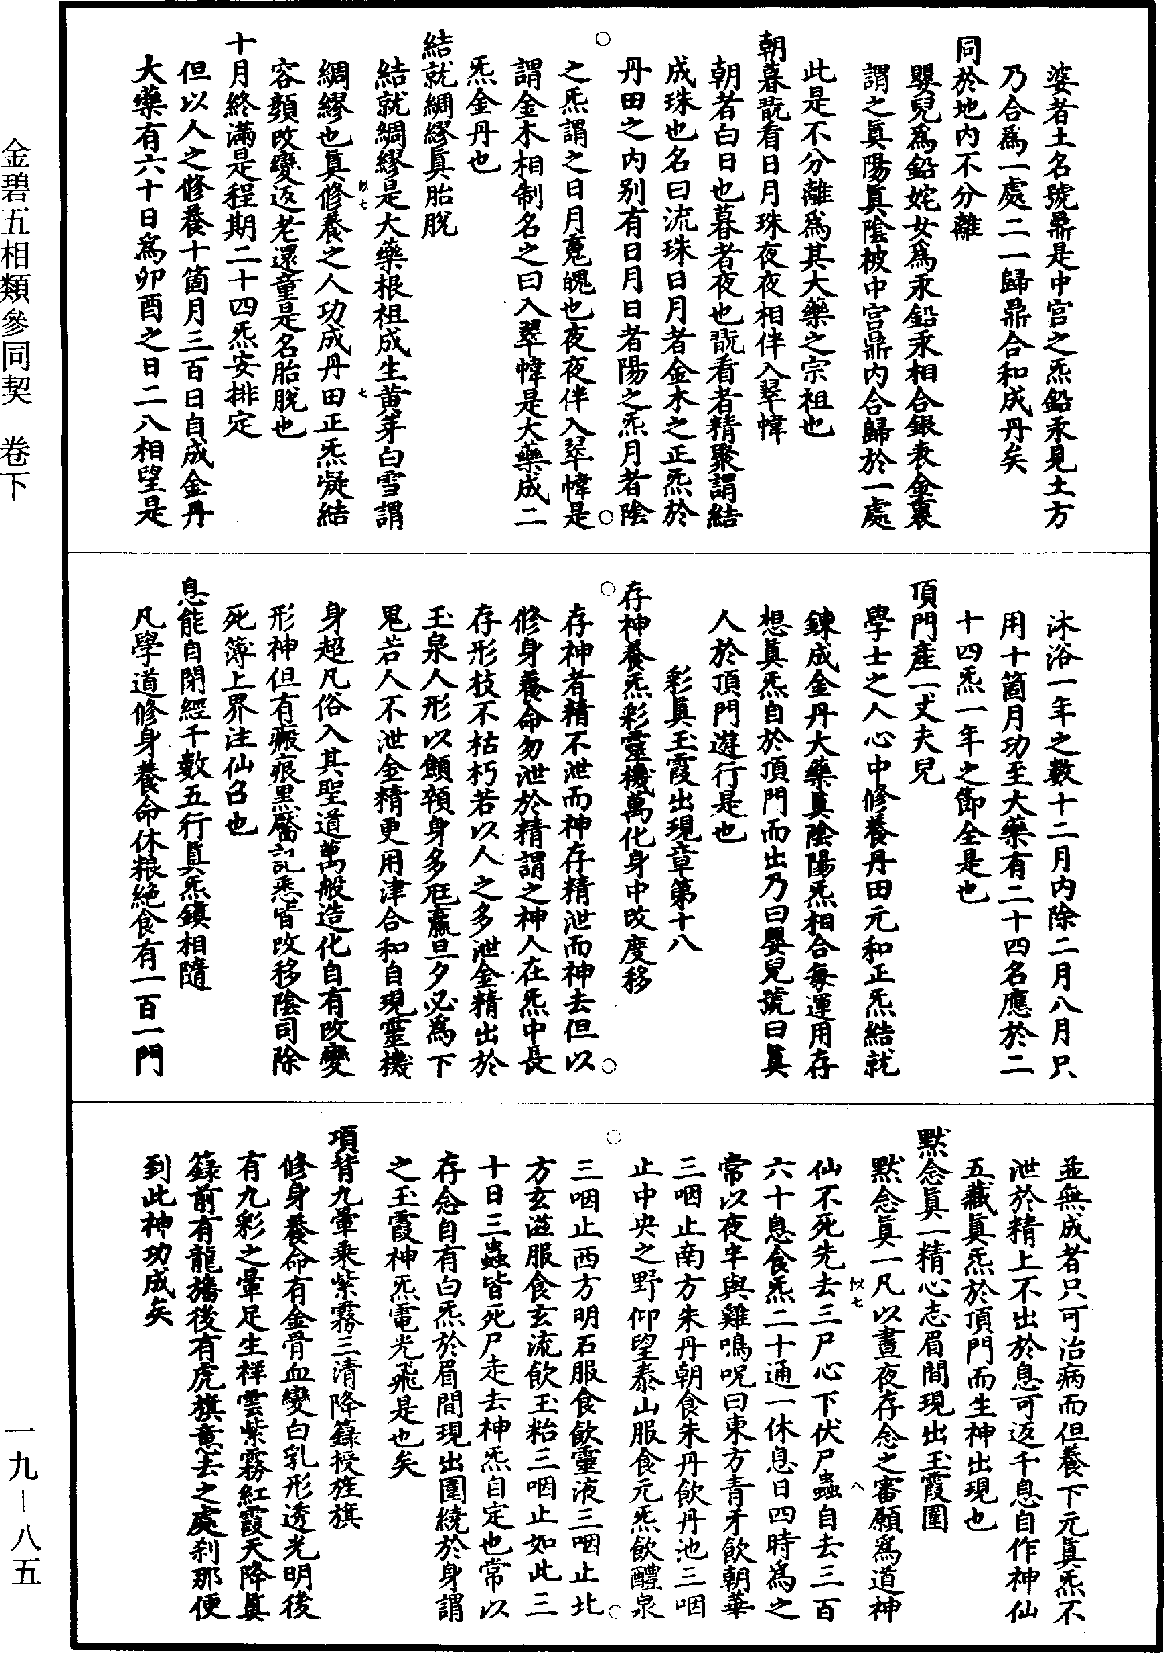 金碧五相類參同契　卷下
婆者土名號鼎是中宮之炁鉛汞見土方
乃合爲一處二一歸鼎合和成丹矣
同於地內不分離
嬰兒爲鉛姹女爲汞鉛汞相合銀表金裏
謂之眞陽眞陰被中宮鼎內合歸於一處
此是不分離爲其大藥之宗祖也
朝暮翫看日月珠夜夜相伴入翠幃
朝者白日也暮者夜也翫看者精聚謂結
成珠也名曰流珠日月者金木之正炁於
丹田之內別有日月日者陽之炁月者陰
之炁謂之日月魂魄也夜夜伴入翠幃是
謂金木相制名之曰入翠幃是大藥成二
炁金丹也
結就綢繆眞胎脫
結就綢繆是大藥根祖成生黃芽白雪謂
綢繆也眞修養之人功成丹田正炁凝結
容顏改變返老還童是名胎脫也
十月終滿是程期二十四炁安排定
但以人之修養十箇月三百日自成金丹
大藥有六十日爲卯酉之日二八相望是
沐浴一年之數十二月內除二月八月只
用十箇月功至大藥有二十四名應於二
十四炁一年之節全是也
頂門產一丈夫兒
學士之人心中修養丹田元和正炁結就
鍊成金丹大藥眞陰陽炁相合每運用存
想眞炁自於頂門而出乃曰嬰兒號曰眞
人於頂門遊行是也
彩眞玉霞出現章第十八
存神養炁彩靈機萬化身中改度移
存神者精不泄而神存精泄而神去但以
修身養命勿泄於精謂之神人在炁中長
存形枝不枯朽若以人之多泄金精出於
玉泉人形以顦顇身多尫羸旦夕必爲下
鬼若人不泄金精更用津合和自現靈機
身超凡俗入其聖道萬般造化自有改變
形神但有瘢痕黑靨記悉皆改移陰司除
死簿上界注仙召也
息能自閉經千數五行眞炁鎮相隨
凡學道修身養命休粮絶食有一百一門
並無成者只可治病而但養下元眞炁不
泄於精上不出於息可返千息自作神仙
五藏眞炁於頂門而生神出現也
默念眞一精心志眉間現出玉霞圍
默念眞一凡以晝夜存念之審願爲道神
仙不死先去三尸心下伏尸蟲自去三百
六十息食炁二十通一休息日四時爲之
常以夜半與雞鳴呪曰東方青牙飲朝華
三咽止南方朱丹朝食朱丹飲丹池三咽
止中央之野仰望泰山服食元炁飲醴泉
三咽止西方明石服食飲靈液三咽止北
方玄滋服食玄流飲玉粘三咽止如此三
十日三蟲皆死尸走去神炁自定也常以
存念自有白炁於眉間現出圍繞於身謂
之玉霞神炁電光飛是也矣
項背九暈乘紫霧三清降籙授旌旗
修身養命有金骨血變白乳形透光明後
有九彩之暈足生祥雲紫霧紅霞天降眞
籙前有龍旛後有虎旗意去之處刹那便
到此神功成矣
一九－八五